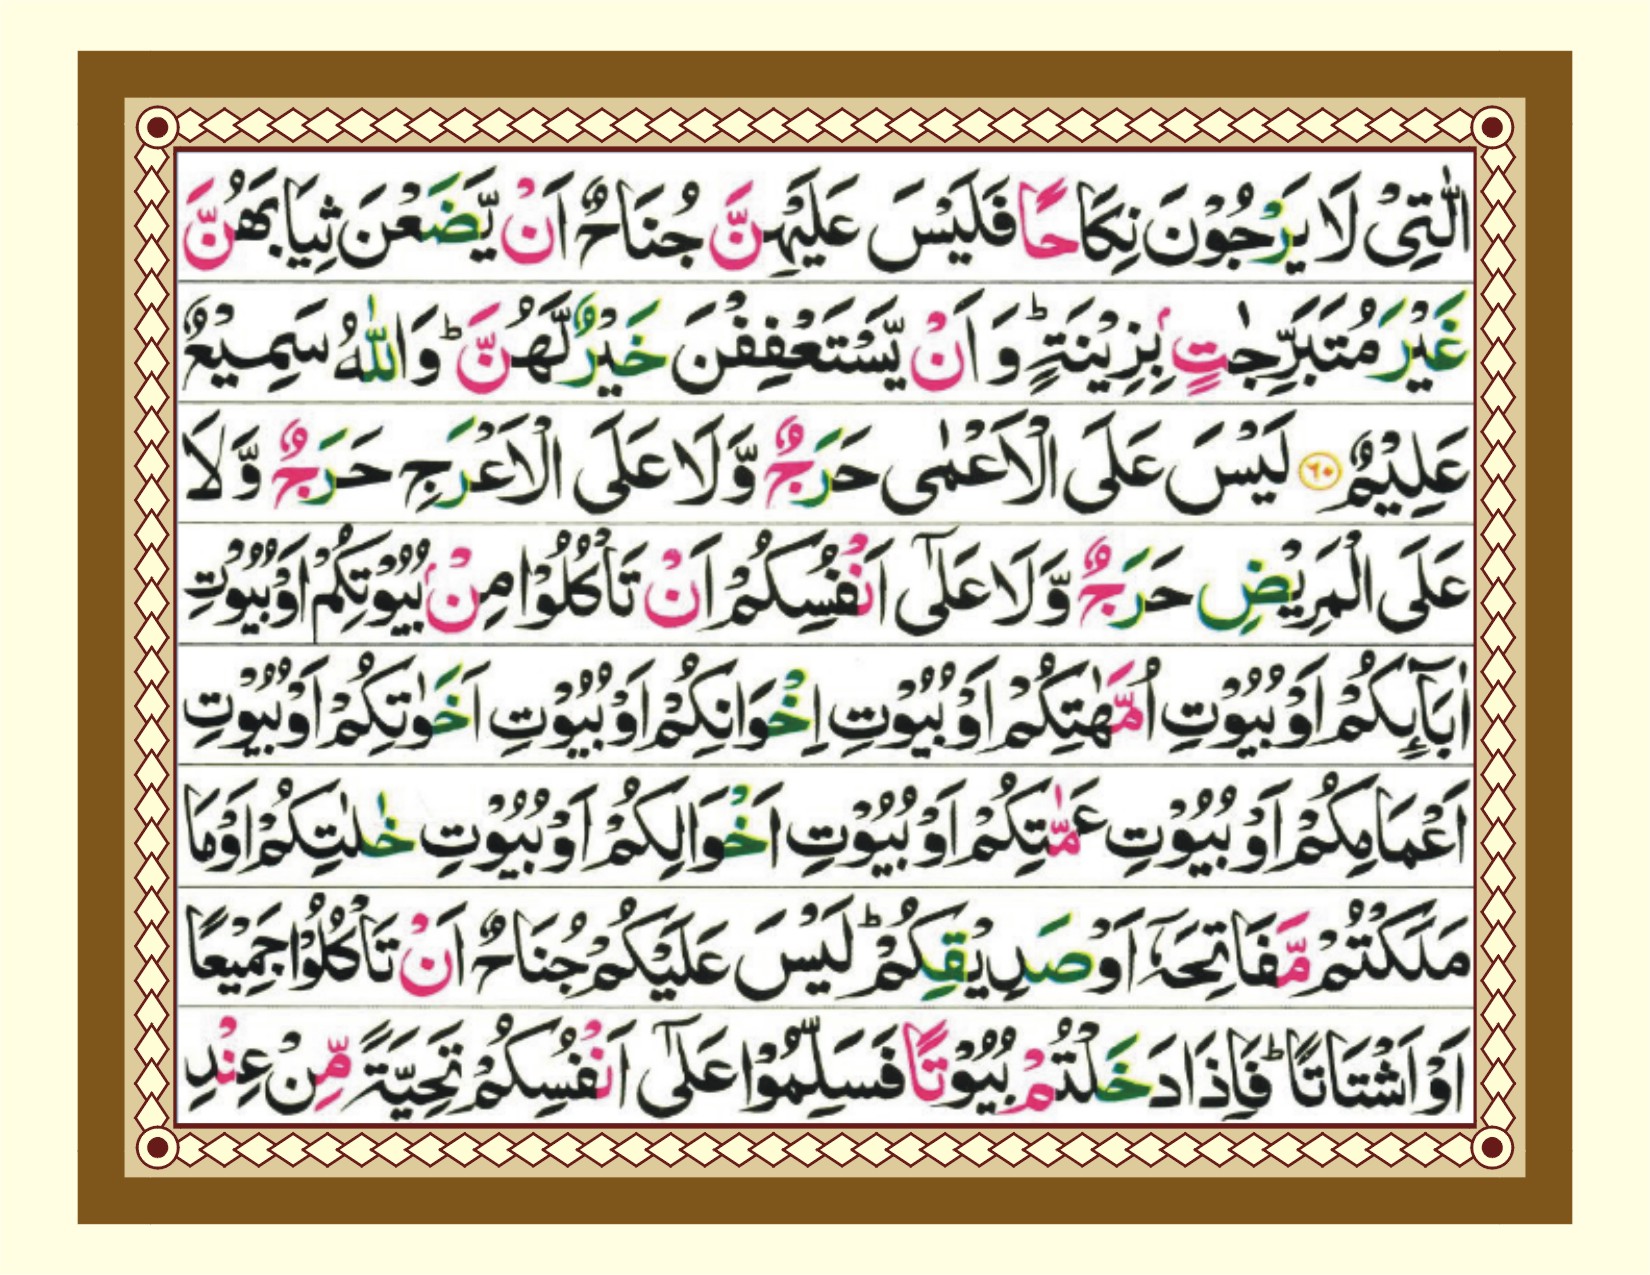 الّٰتِیْ لَا یَرْجُوْنَ نِكَاحًا فَلَیْسَ عَلَیْهِنَّ جُنَاحٌ اَنْ یَّضَعْنَ ثِیَابَهُنَّ
غَیْرَ مُتَبَرِّجٰتٍۭ بِزِیْنَةٍؕ وَ اَنْ یَّسْتَعْفِفْنَ خَیْرٌ لَّهُنَّؕ وَاللّٰهُ سَمِیْعٌ
عَلِیْمٌ ۶۰ لَیْسَ عَلَی الْاَعْمٰی حَرَجٌ وَّلَا عَلَی الْاَعْرَجِ حَرَجٌ وَّلَا
عَلَی الْمَرِیْضِ حَرَجٌ وَّلَا عَلٰۤی اَنْفُسِكُمْ اَنْ تَاْكُلُوْا مِنْۢ بُیُوْتِكُمْ اَوْ بُیُوْتِ
اٰبَآىِٕكُمْ اَوْ بُیُوْتِ اُمَّهٰتِكُمْ اَوْ بُیُوْتِ اِخْوَانِكُمْ اَوْ بُیُوْتِ اَخَوٰتِكُمْ اَوْ بُیُوْتِ
اَعْمَامِكُمْ اَوْ بُیُوْتِ عَمّٰتِكُمْ اَوْ بُیُوْتِ اَخْوَالِكُمْ اَوْ بُیُوْتِ خٰلٰتِكُمْ اَوْ مَا
مَلَكْتُمْ مَّفَاتِحَهٗۤ اَوْ صَدِیْقِكُمْؕ لَیْسَ عَلَیْكُمْ جُنَاحٌ اَنْ تَاْكُلُوْا جَمِیْعًا
اَوْ اَشْتَاتًاؕ فَاِذَا دَخَلْتُمْ بُیُوْتًا فَسَلِّمُوْا عَلٰۤی اَنْفُسِكُمْ تَحِیَّةً مِّنْ عِنْدِ